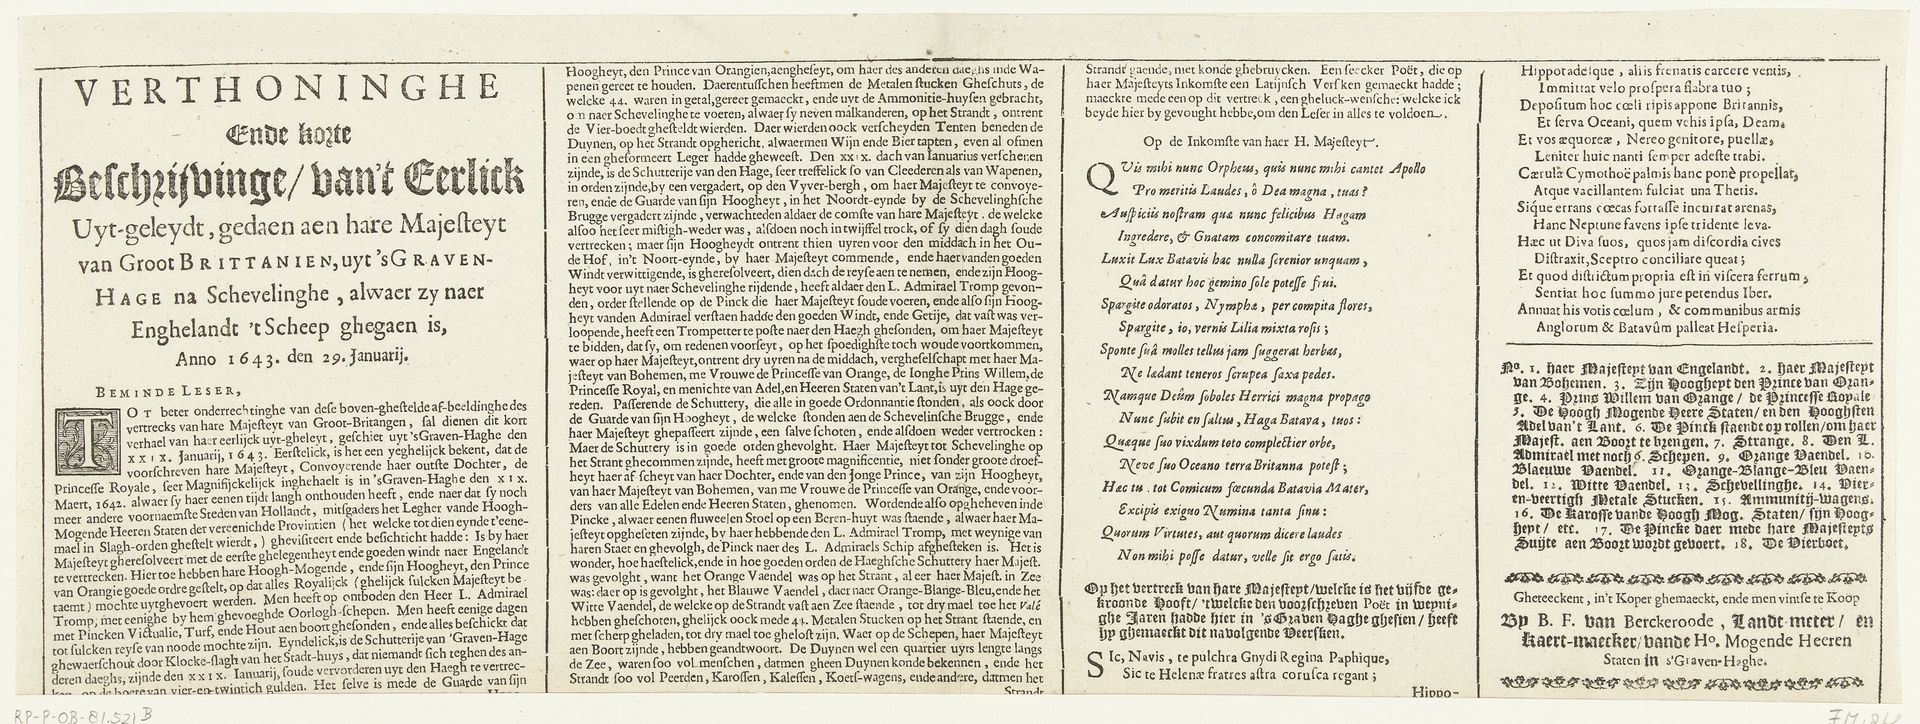 VERTHONINGHE
Ende korte
Beschrijvinge/ van't Eerlick
Uyt-geleydt, gedaen aen hare Majesteyt
van Groot BRITTANIEN, uyt 'sGRAVEN-
HAGE na Schevelinghe, alwaer zy naer
Enghelandt 't Scheep ghegaen is,
Anno 1643. den 29. Januarij.
BEMINDE LESER,
TOT beter onderrechtinghe van dese boven-ghestelde af-beeldinghe des
vertrecks van hare Majesteyt van Groot-Britangen, sal dienen dit kort
verhael van haer eerlijck uyt-gheleyt, geschiet uyt 'sGraven-Haghe den
XXIX. Januarij, 1643. Eerstelick, is het een yeghelijck bekent, dat de
voorschreven hare Majesteyt, Convoyerende haer outste Dochter, de
Princesse Royale, seer Magnifijckelijck inghehaelt is in 'sGraven-Haghe den XIX.
Maert, 1642. alwaer sy haer eenen tijdt langh onthouden heeft, ende naer dat sy noch
meer andere voornaemste Steden van Hollandt, mitsgaders het Legher vande Hoogh-
Mogende Heeren Staten der vereenichde Provintien (het welcke tot dien eynde t'eene-
mael in Slagh-orden ghestelt wierdt,) ghevisiteert ende besichticht hadde: Is by haer
Majesteyt gheresolveert met de eerste ghelegentheyt ende goeden windt naer Engelandt
te vertrecken. Hier toe hebben hare Hoogh-Mogende, ende sijn Hoogheyt, den Prince
van Orangie goede ordre gestelt, op dat alles Royalijck (ghelijck sulcken Majesteyt be-
taemt) mochte uytghevoert werden. Men heeft op ontboden den Heer L. Admirael
Tromp, met eenighe by hem ghevoeghde Oorlogh-schepen. Men heeft eenige dagen
met Pincken Victualie, Turf, ende Hout aen boort ghesonden, ende alles beschickt dat
tot sulcken reyse van noode mochte zijn. Eyndelick, is de Schutterije van 'Graven-Hage
ghewaerschout door Klocke-slagh van het Stadt-huys, dat niemandt sich teghen des an-
deren daeghs, zijnde den XXIX. Januarij, soude vervorderen uyt den Haegh te vertrec-
ken, op de boete van vier-en-twintich gulden. Het selve is mede de Guarde van sijn
Hoogheyt, den Prince van Orangien, aengheseyt, om haer des anderen daeghs inde Wa-
penen gereet te houden. Daerentusschen heeftmen de Metalen stucken Gheschuts, de
welcke 44. waren in getal, gereet gemaeckt, ende uyt de Ammonitie-huysen gebracht,
om naer Schevelinghe te voeren, alwaer sy neven malkanderen, op het Strandt, ontrent
de Vier-boedt ghesteldt wierden. Daer wierden oock verscheyden Tenten beneden de
Duynen, op het Strandt opghericht, alwaermen Wijn ende Bier tapten, even al ofmen
in een gheformeert Leger hadde gheweest. Den XXIX. dach van Ianuarius verschenen
zijnde, is de Schutterije van den Hage, seer treffelick so van Cleederen als van Wapenen,
in orden zijnde, by een vergadert, op den Vyver-bergh, om haer Majesteyt te convoye-
ren, ende de Guarde van sijn Hoogheyt, in het Noordt-eynde by de Schevelinghsche
Brugge vergadert zijnde, verwachteden aldaer de comste van hare Majesteyt, de welcke
alsoo het seer mistigh-weder was, alsdoen noch in twijffel trock, of sy dien dagh soude
vertrecken; maer sijn Hoogheydt ontrent thien uyren voor den middach in het Ou-
de Hof, in't Noort-eynde, by haer Majesteyt commende, ende haer vanden goeden
Windt verwittigende, is gheresolveert, dien dach de reyse aen te nemen, ende zijn Hoog-
heyt voor uyt naer Schevelinghe rijdende, heeft aldaer den L. Admirael Tromp gevon-
den, order stellende op de Pinck die haer Majesteyt soude voeren, ende also sijn Hoog-
heyt vanden Admirael verstaen hadde den goeden Windt, ende Getije, dat vast was ver-
loopende, heeft een Trompetter te poste naer den Haegh ghesonden, om haer Majesteyt
te bidden, dat sy, om redenen voorseyt, op het spoedighste toch woude voortkommen,
waer op haer Majesteyt, ontrent dry uyren na de middach, verghesel­schapt met haer Ma-
jesteyt van Bohemen, me Vrouwe de Princesse van Orange, de Ionghe Prins Willem, de
Princesse Royal, en menichte van Adel, en Heeren Staten van't Lant, is uyt den Hage ge-
reden. Passerende de Schuttery, die alle in goede Ordonnantie stonden, als oock door
de Guarde van sijn Hoogheyt, de welcke stonden aen de Schevelinsche Brugge, ende
haer Majesteyt ghepasseert zijnde, een salve schoten, ende alsdoen weder vertrocken:
Maer de Schuttery is in goede orden ghevolght. Haer Majesteyt tot Schevelinghe op
het Strant ghecommen zijnde, heeft met groote magnificentie, niet sonder groote droef-
heyt haer afscheyt van haer Dochter, ende van den Jonge Prince, van zijn Hoogheyt,
van haer Majesteyt van Bohemen, van me Vrouwe de Princesse van Orange, ende voor-
ders van alle Edelen ende Heeren Staten, ghenomen. Wordende also opgheheven inde
Pincke, alwaer eenen fluweelen Stoel op een Beren-huyt was staende, alwaer haer Ma-
jesteyt opgheseten zijnde, by haer hebbende den L. Admirael Tromp, met weynige van
haren Staet en ghevolgh, de Pinck naer des L. Admiraels Schip afghesteken is. Het is
wonder, hoe haestelick, ende in hoe goeden orden de Haeghsche Schuttery haer Majest.
was gevolght, want het Orange Vaendel was op het Strant, al eer haer Majest. in Zee
was: daer op is gevolght, het Blauwe Vaendel, daer naer Orange-Blange-Bleu, ende het
Witte Vaendel, de welcke op de Strandt vast aen Zee staende, tot dry mael toe het Valé
hebben gheschoten, ghelijck oock mede 44. Metalen Stucken op het Strant staende, en
met scherp gheladen, tot dry mael toe ghelost zijn. Waer op de Schepen, haer Majesteyt
aen Boort zijnde, hebben geandtwoort. De Duynen wel een quartier uyrs lengte langs
de Zee, waren soo vol menschen, datmen gheen Duynen konde bekennen, ende het
Strandt soo vol Peerden, Karossen, Kalessen, Koets-wagens, ende andere, datmen het
Strandt
Strandt gaende, niet konde ghebruycken. Een seecker Poët, die op
haer Majesteyts Inkomste een Latijnsch Versken gemaeckt hadde;
maeckte mede een op dit vertreck, een gheluck-wensche: welcke ick
beyde hier by gevought hebbe, om den Leser in alles te voldoen.
Op de Inkomste van haer H. Majesteyt.
QVis mihi nunc Orpheus, quis nunc mihi cantet Apollo
Pro meritis Laudes, ô Dea magna, tuas?
Auspiciis nostram quæ nunc felicibus Hagam
Ingredere, & Gnatam concomitare tuam.
Luxit Lux Batavis hac nulla serenior unquam,
Quâ datur hoc gemino sole potesse frui.
Spargite odoratos, Nymphæ, per compita flores,
Spargite, io, vernis Lilia mixta rosis;
Sponte suâ molles tellus jam suggerat herbas,
Ne lædant teneros scrupea saxa pedes.
Namque Deûm soboles Herrici magna propago
Nunc subit en saltus, Haga Batava, tuos:
Quæque suo vixdum toto complectier orbe,
Neve suo Oceano terra Britanna potest;
Hæc tu, tot Comicum fœcunda Batavia Mater,
Excipis exiguo Numina tanta sinu:
Quorum Virtutes, aut quorum dicere laudes
Non mihi posse datur, velle sit ergo satis.
Op het vertreck van hare Majesteyt/ welcke is het vijfde ge-
kroonde Hooft/ 'twelcke den voorschreven Poët in weyni-
ghe Jaren hadde hier in 's Graven Haghe ghesien/ heeft
hy ghemaeckt dit navolgende Veersken.
SIc, Navis, te pulchra Gnydi Regina Paphique,
Sic te Helenæ fratres astra corusca regant;
Hippo-
Hippotadesque, aliis frenatis carcere ventis,
Immittat velo prospera flabra tuo;
Depositum hoc cœli ripis appone Britannis,
Et serva Oceani, quem vehis ipsa, Deam.
Et vos æquoreæ, Nereo genitore, puellæ,
Leniter huic nanti semper adeste trabi.
Cærula Cymothoë palmis hanc ponè propellat,
Atque vacillantem fulciat una Thetis.
Sique errans cœcas fortasse incurrat arenas,
Hanc Neptune favens ipse tridente leva.
Hæc ut Diva suos, quos jam discordia cives
Distraxit, Sceptro conciliare queat;
Et quod districtum propria est in viscera ferrum,
Sentiat hoc summo jure petendus Iber.
Annuat his votis cœlum, & communibus armis
Anglorum & Batavûm palleat Hesperia.
No. 1. haer Majesteyt van Engelandt. 2. haer Majesteyt
van Bohemen. 3. Zijn Hoogheyt den Prince van Oran-
ge. 4. Prins Willem van Orange/ de Princesse Royale
5. De Hoogh Mogende Heere Staten/ en den Hooghsten
Adel van't Lant. 6. De Pinck staende op rollen/ om haer
Majest. aen Boort te brengen. 7. Strange. 8. Den L.
Admirael met noch 6. Schepen. 9. Orange Vaendel. 10.
Blaeuwe Vaendel. 11. Orange-Blange-Bleu Vaen-
del. 12. Witte Vaendel. 13. Schevellinghe. 14. Vier-
en-veertigh Metale Stucken. 15. Ammunitij-Wagens.
16. De Karosse vande Hoogh Mog. Staten/ sijn Hoog-
heyt/ etc. 17. De Pincke daer mede hare Majesteyts
Suijte aen Boort wordt gevoert. 18. De Vierboet.
Gheteeckent, in't Koper ghemaeckt, ende men vintse te Koop
By B. F. van Berckeroode, Landt-meter/ en
Kaert-maecker/ vande Ho. Mogende Heeren
Staten in s'Graven-Haghe.
RP-P-OB-81.521 B